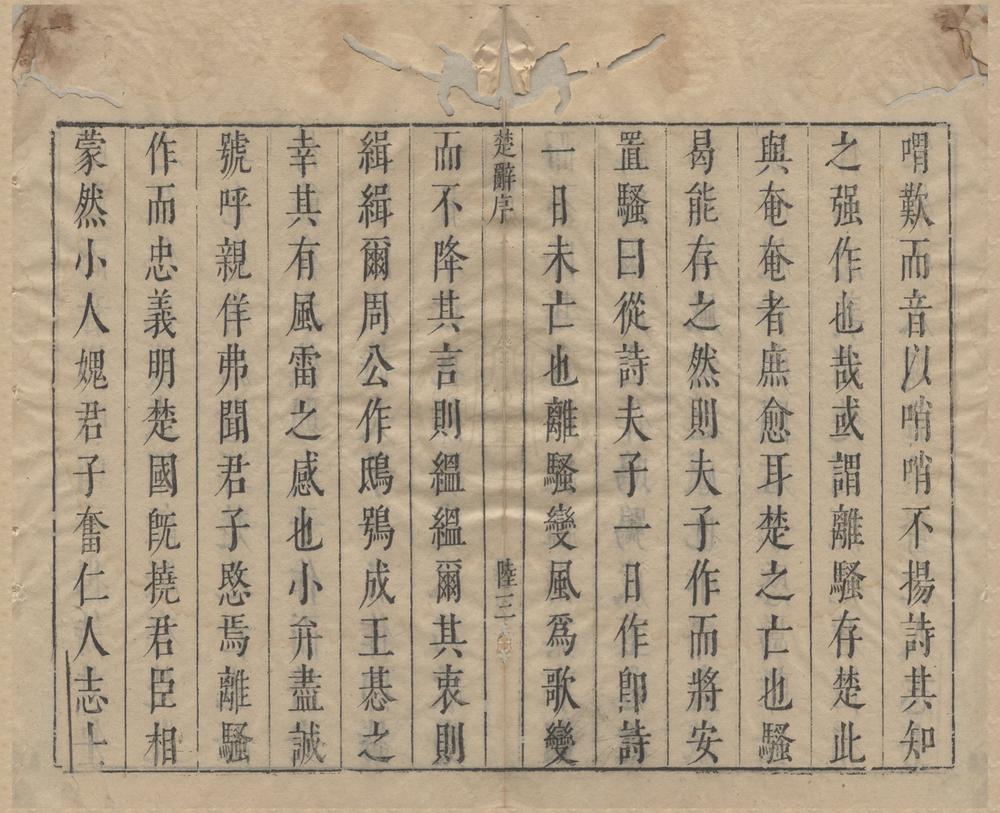 喟歎而音以哨哨不揚詩其知
之强作也哉或謂離騷存楚此
與奄奄者庶愈耳楚之亡也騷
曷能存之然則夫子作而將安
置騷曰從詩夫子一日作卽詩
一日未亡也離騷變風爲歌變
楚辭序
陸三
而不降其言則縕縕爾其衷則
緝緝爾周公作鴟鴞成王惎之
幸其有風雷之感也小弁盡誠
號呼親佯弗聞君子愍焉離騷
作而忠義明楚國旣撓君臣相
蒙然小人媿君子奮仁人志士